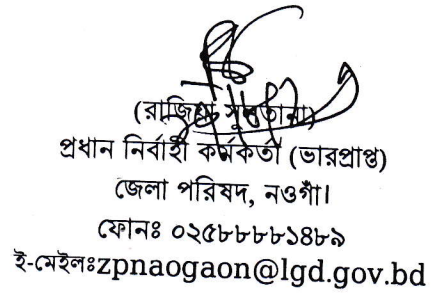 (রাজিয়া সুলতানা)
প্রধান নির্বাহী কর্মকর্তা (ভারপ্রাপ্ত)
জেলা পরিষদ, নওগাঁ।
ফোনঃ ০২৫৮৮৮৮১৪৮৯
ই-মেইলঃzpnaogaon@lgd.gov.bd